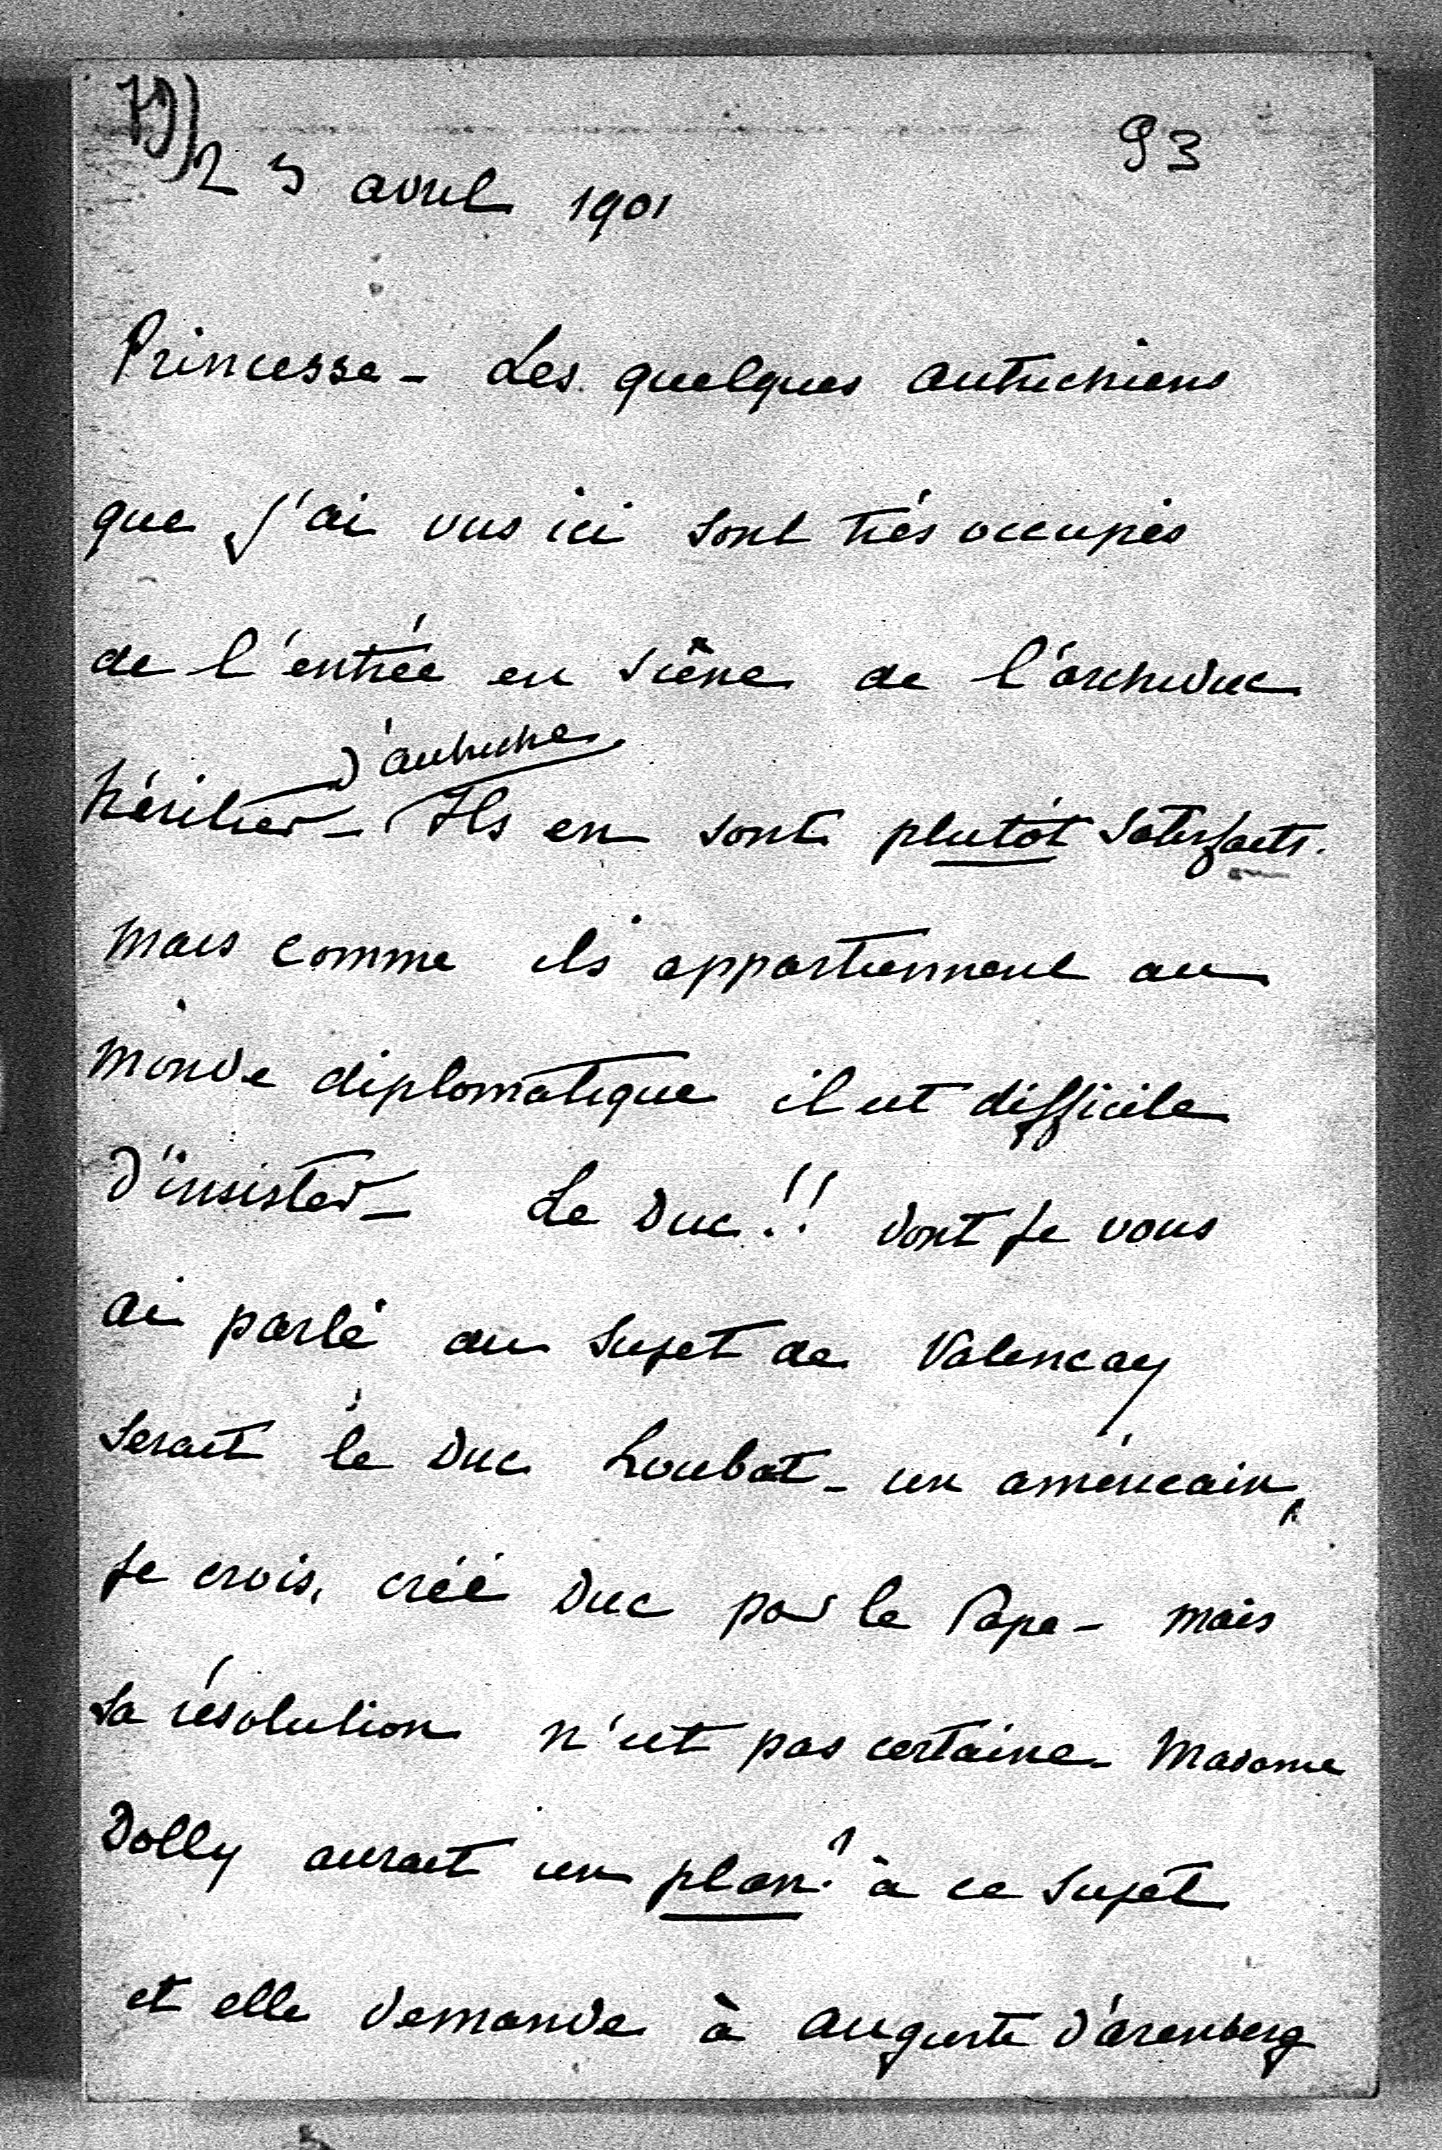 79)
93
25 avril 1901
Princesse - Les quelques autrichiens
que j'ai vus ici sont très occupés
de l'entrée en scène de l'archiduc
d'autriche
héritier - Ils en sont plutôt satisfaits.
mais comme ils appartiennent au
monde diplomatique il est difficile
d'insister - Le Duc!! dont je vous
ai parlé au sujet de Valencay
serait le Duc Loubat - un américain,
je crois, créé Duc par le Pape - mais
sa résolution n'est pas certaine. Madame
Dolly aurait un plan? à ce sujet
et elle demande à auguste d'arenberg